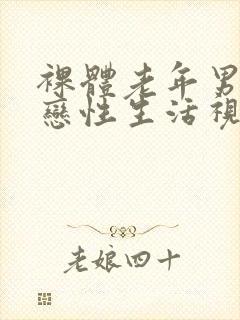 裸體老年男
戀性生活視
老娘四十